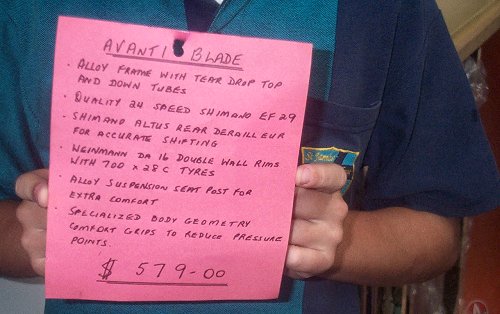 AVANTI BLADE
· ALLOY FRAME WITH TEAR DROP TOP
AND DOWN TUBES
· QUALITY 24 SPEED SHIMANO EF 29
· SHIMANO ALTUS REAR DERAILLEUR
FOR ACCURATE SHIFTING
· WEINMANN DA 16 DOUBLE WALL RIMS
WITH 700 x 28C TYRES
· ALLOY SUSPENSION SEAT POST FOR
EXTRA COMFORT
· SPECIALIZED BODY GEOMETRY
COMFORT GRIPS TO REDUCE PRESSURE
POINTS.
$ 579-00